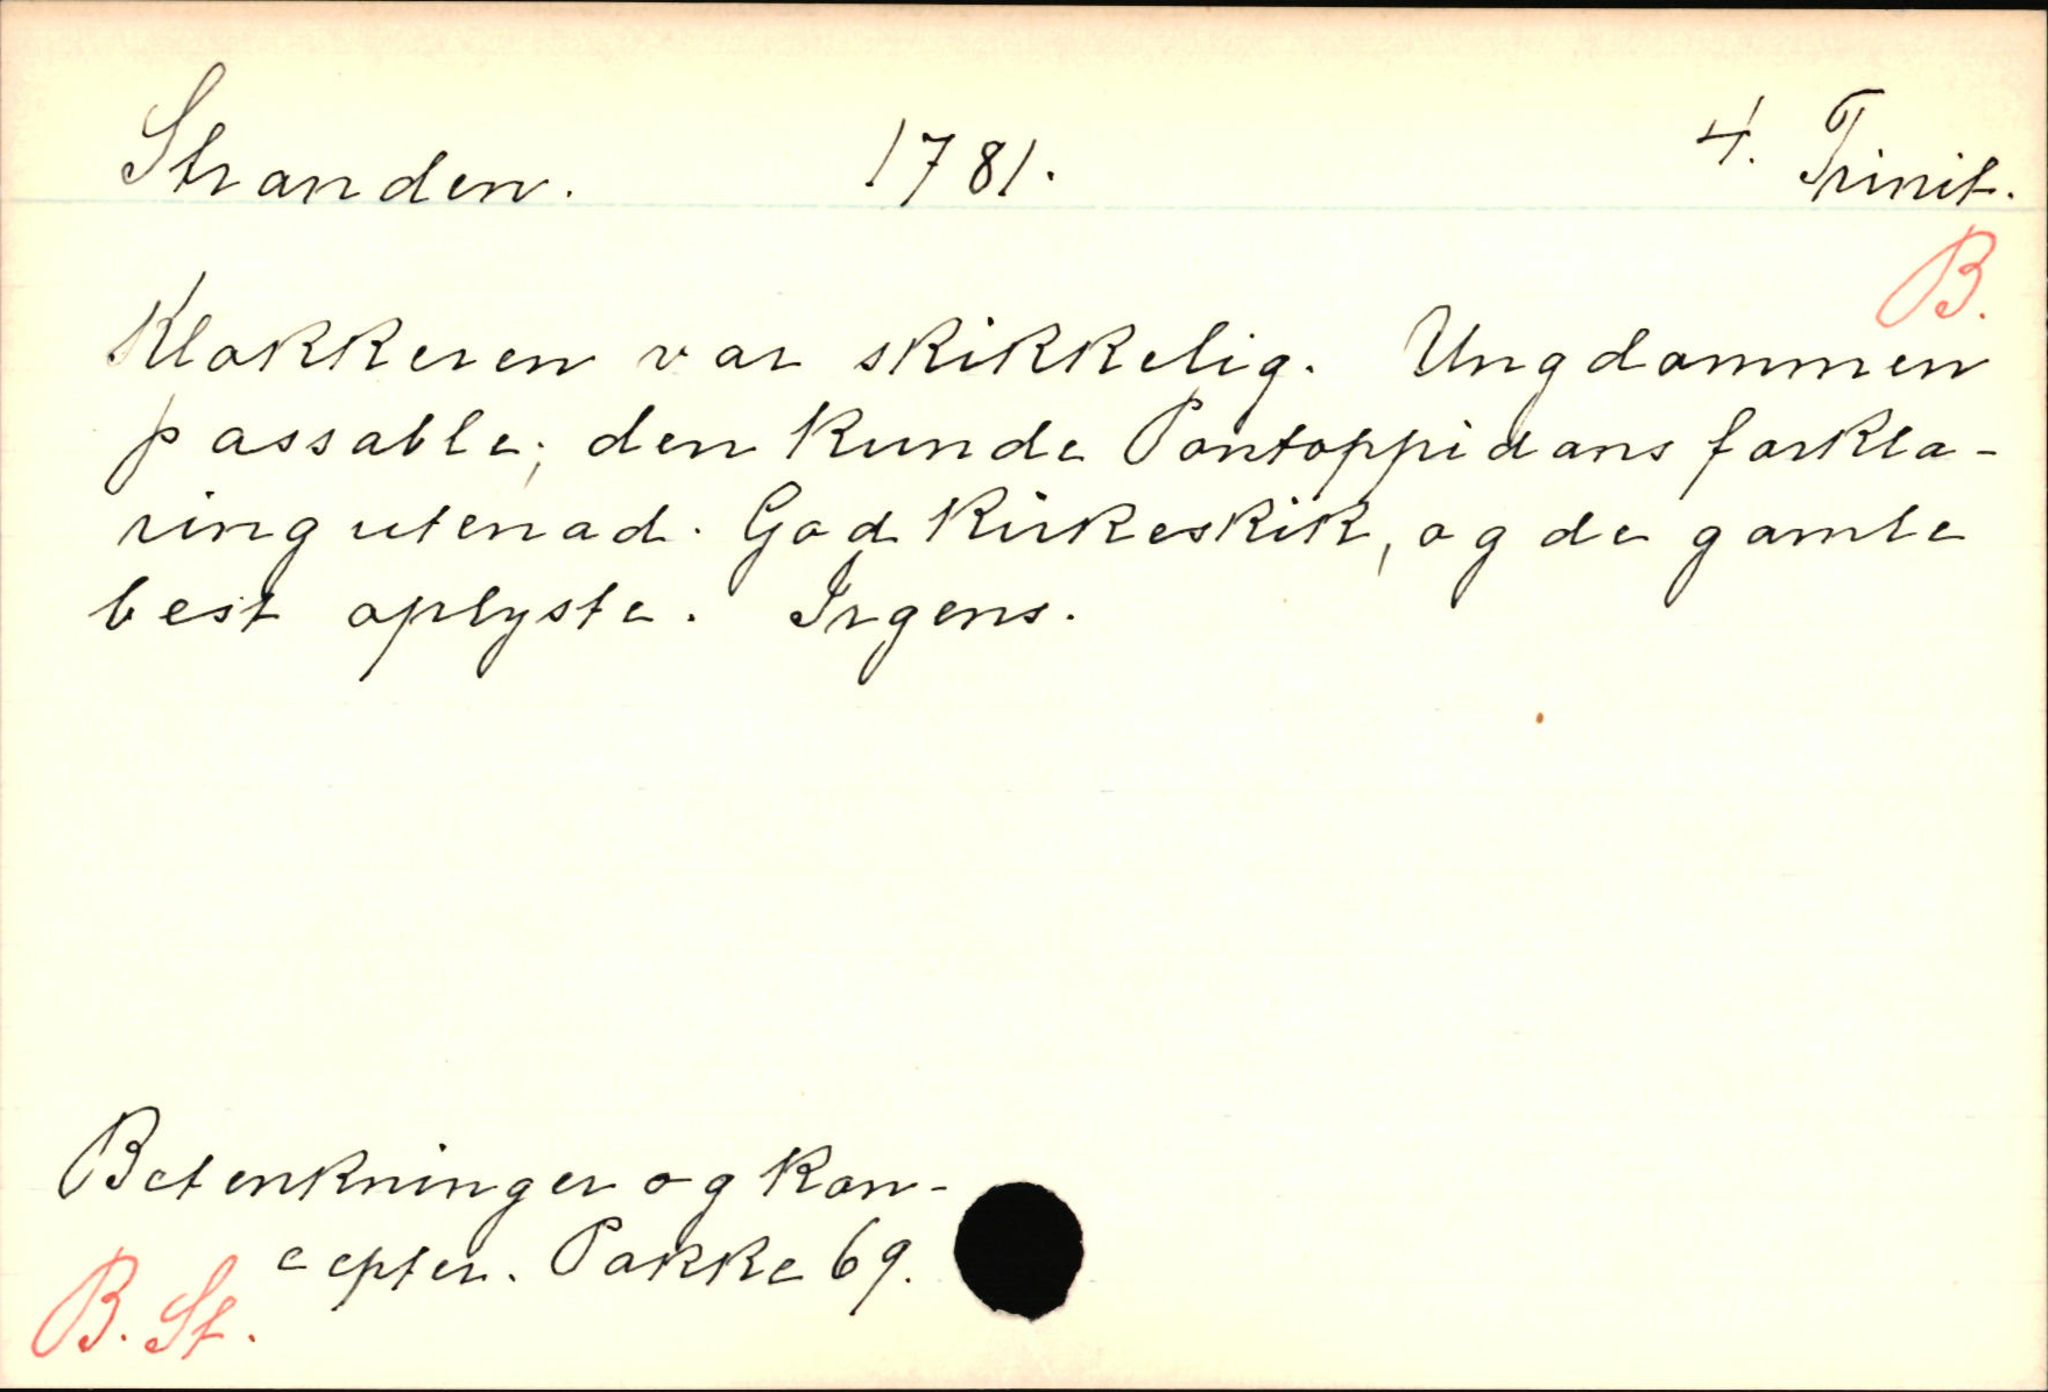 Stranden. 1781. 4. Trinit.
B.
Klokkeren var skikkelig. Ungdommen
passable; den kunde Pontoppidans forkla-
ring utenad. God kirkeskik, og de gamle
best oplyste. Irgens.
Betenkninger og kon-
cepter. Pakke 69.
B. St.